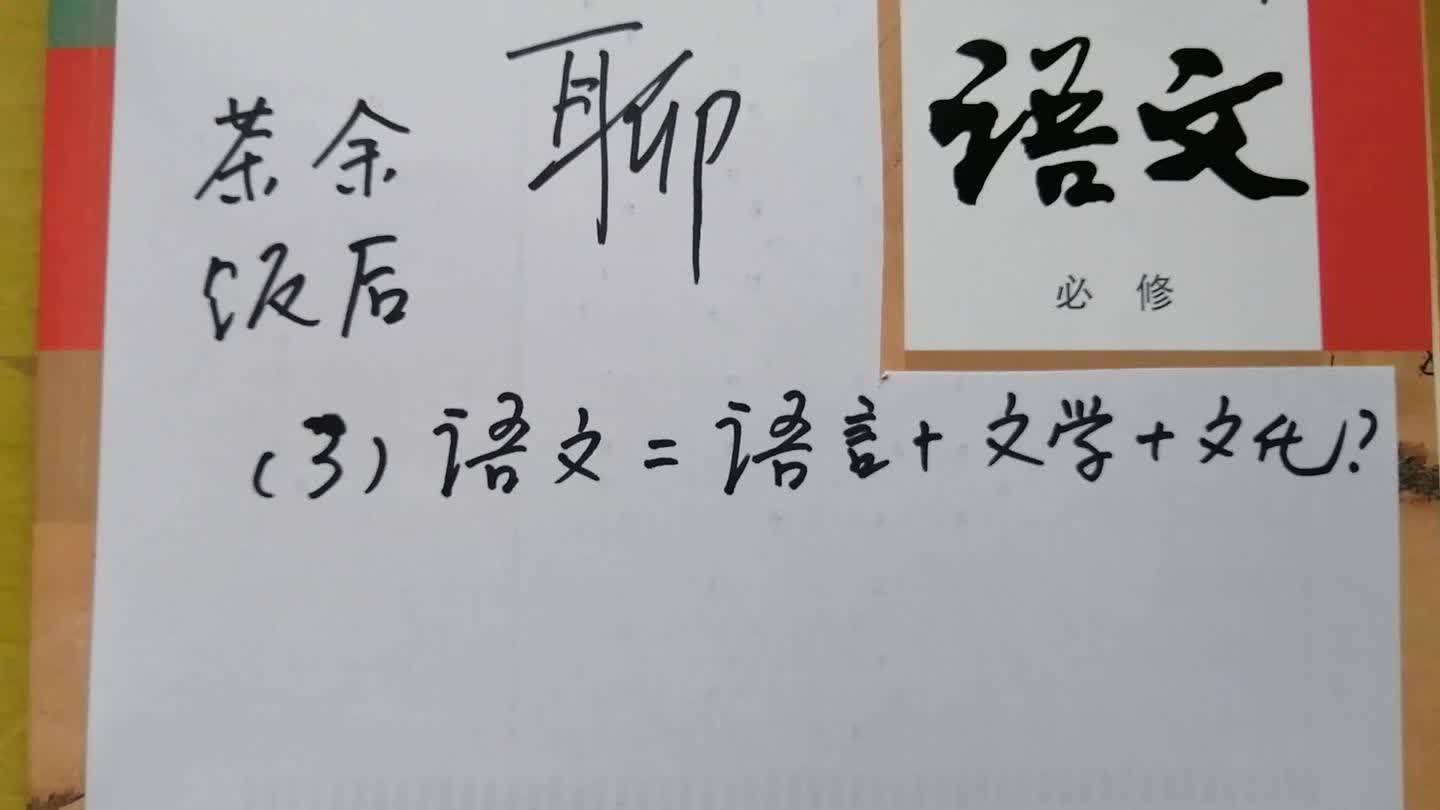 茶余 聊 语文
饭后
必修
(3)语文=语言+文学+文化?